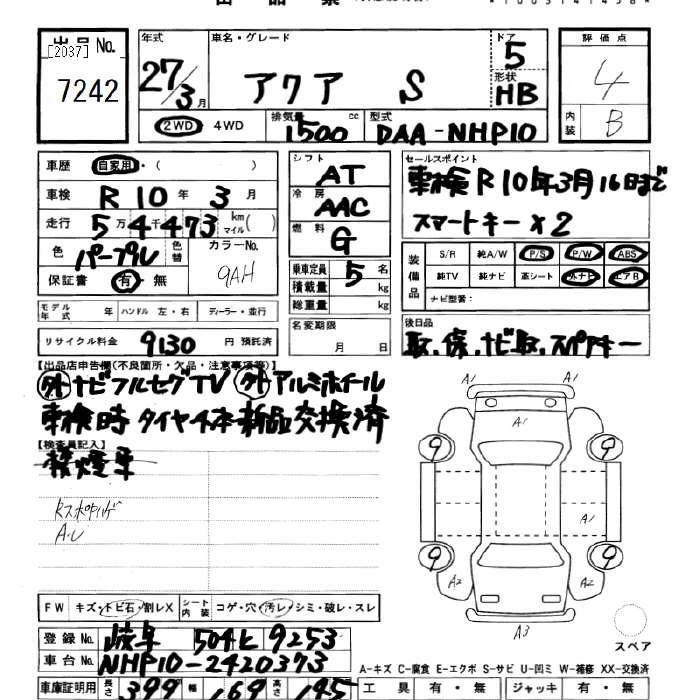 出品票
出品No. 年式 車名・グレード ドア 評価点
[2037] 5
7242 27/3月 アクア S 形状 4
HB
2WD 4WD 排気量 1500 cc 型式 DAA-NHP10 内装 B
車歴 自家用・( ) シフト AT セールスポイント
車検 R 10 年 3 月 冷房 AAC 車検R10年3月16日まで
走行 5万4千473 km マイル( ) 燃料 G スマートキー×2
色 パープル 色替 カラーNo. 9AH
乗車定員 5 名 装備品 S/R 純A/W P/S P/W ABS
保証書 有・無 積載量 kg 純TV 純ナビ 革シート 外ナビ エアB
総重量 kg ナビ型番:
モデル年式 年 ハンドル 左・右 ディーラー・並行
名変期限 月 日 後日品
リサイクル料金 9130 円 預託済 取,保,ナビ取,スペアキー
【出品店申告欄(不良箇所・欠品・注意事項等)】
外ナビフルセグTV 外アルミホイール
車検時 タイヤ4本新品交換済
【検査員記入】
A1
A1
9 9
A1
9 9
A2 A2
A3
スペア
FW キズ・トビ石・割レX シート内装 コゲ・穴・汚レ・シミ・破レ・スレ
登録No. 岐阜 504 ヒ 9253
車台No. NHP10-2420373
A-キズ C-腐食 E-エクボ S-サビ U-凹ミ W-補修 XX-交換済
車庫証明用 長さ 399 幅 169 高さ 145 工具 有・無 ジャッキ 有・無